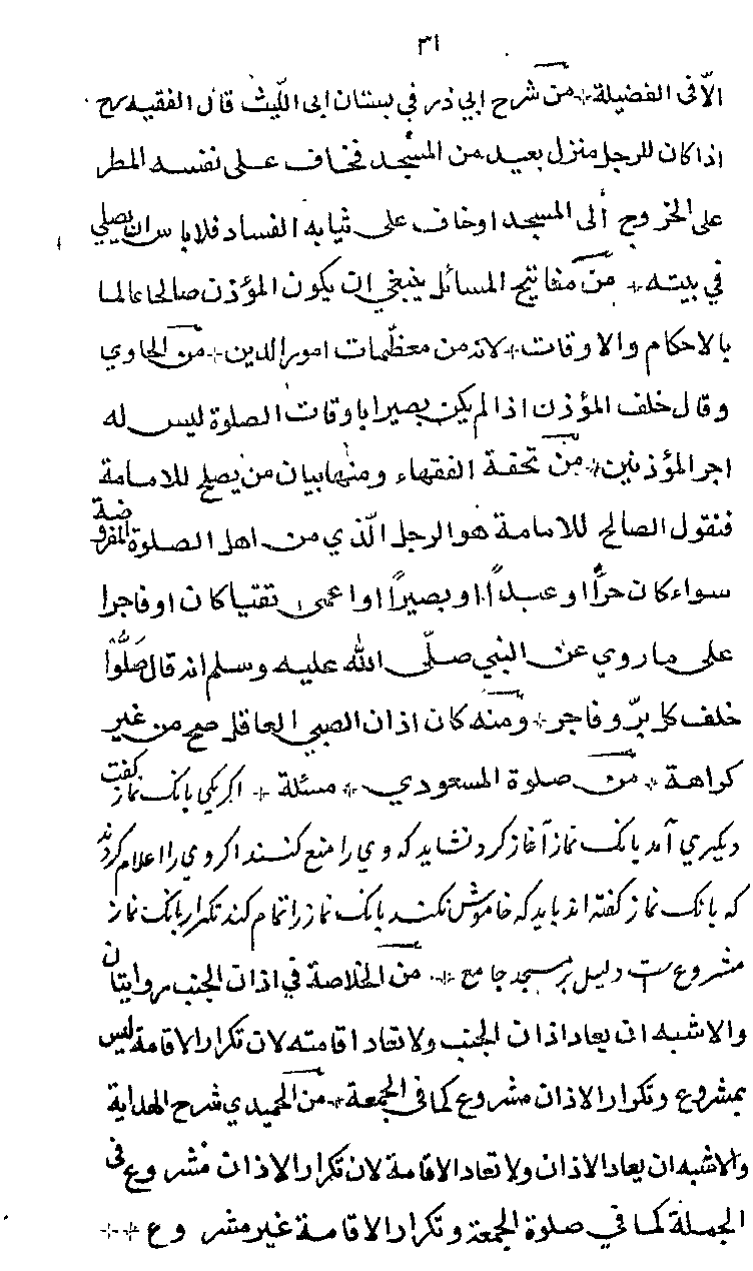 ٣١
الّا فى الفضيلة * من شرح ابي ذر في بستان ابى الليث قال الفقيه رح
اذا كان للرجل منزل بعيد من المسجد فخاف على نفسه المطر
على الخروج الى المسجد او خاف على ثيابه الفساد فلا باس ان يصلي
في بيته * من مفاتيح المسائل ينبغي ان يكون المؤذن صالحا عالما
بالاحكام والاوقات * لانه من معظمات امور الدين * من الحاوي
وقال خلف المؤذن اذا لم يكن بصيرا باوقات الصلوة ليس له
اجر المؤذنين * من تحفة الفقهاء ومنها بيان من يصلح للامامة
فنقول الصالح للامامة هو الرجل الّذي من اهل الصلوة المفروضة
سواء كان حرًّا او عبدًا او بصيرًا او اعمى تقيا كان او فاجرا
على ما روي عن النبي صلّى الله عليه وسلم انه قال صَلُّوْا
خلف كل برّ وفاجر * ومنه كان اذان الصبي العاقل صح من غير
كراهة * من صلوة المسعودي * مسئلة * اكر يكي بانك نماز كفت
ديكري آمد بانك نماز آغاز كرد نشايد كه وي را منع كنند اكر وي را اعلام كردند
كه بانك نماز كفته اند بايد كه خاموش نكند بانك نماز را تمام كند تكرار بانك نماز
مشروع ست دليل بر مسجد جامع * من الخلاصة في اذان الجنب روايتان
والاشبه ان يعاد اذان الجنب ولا تعاد اقامته لان تكرار الاقامة ليس
بمشروع وتكرار الاذان مشروع كما في الجمعة * من الحميدي شرح الهداية
والاشبه ان يعاد الاذان ولا تعاد الاقامة لان تكرار الاذان مشروع فى
الجملة كما في صلوة الجمعة وتكرار الاقامة غير مشروع **